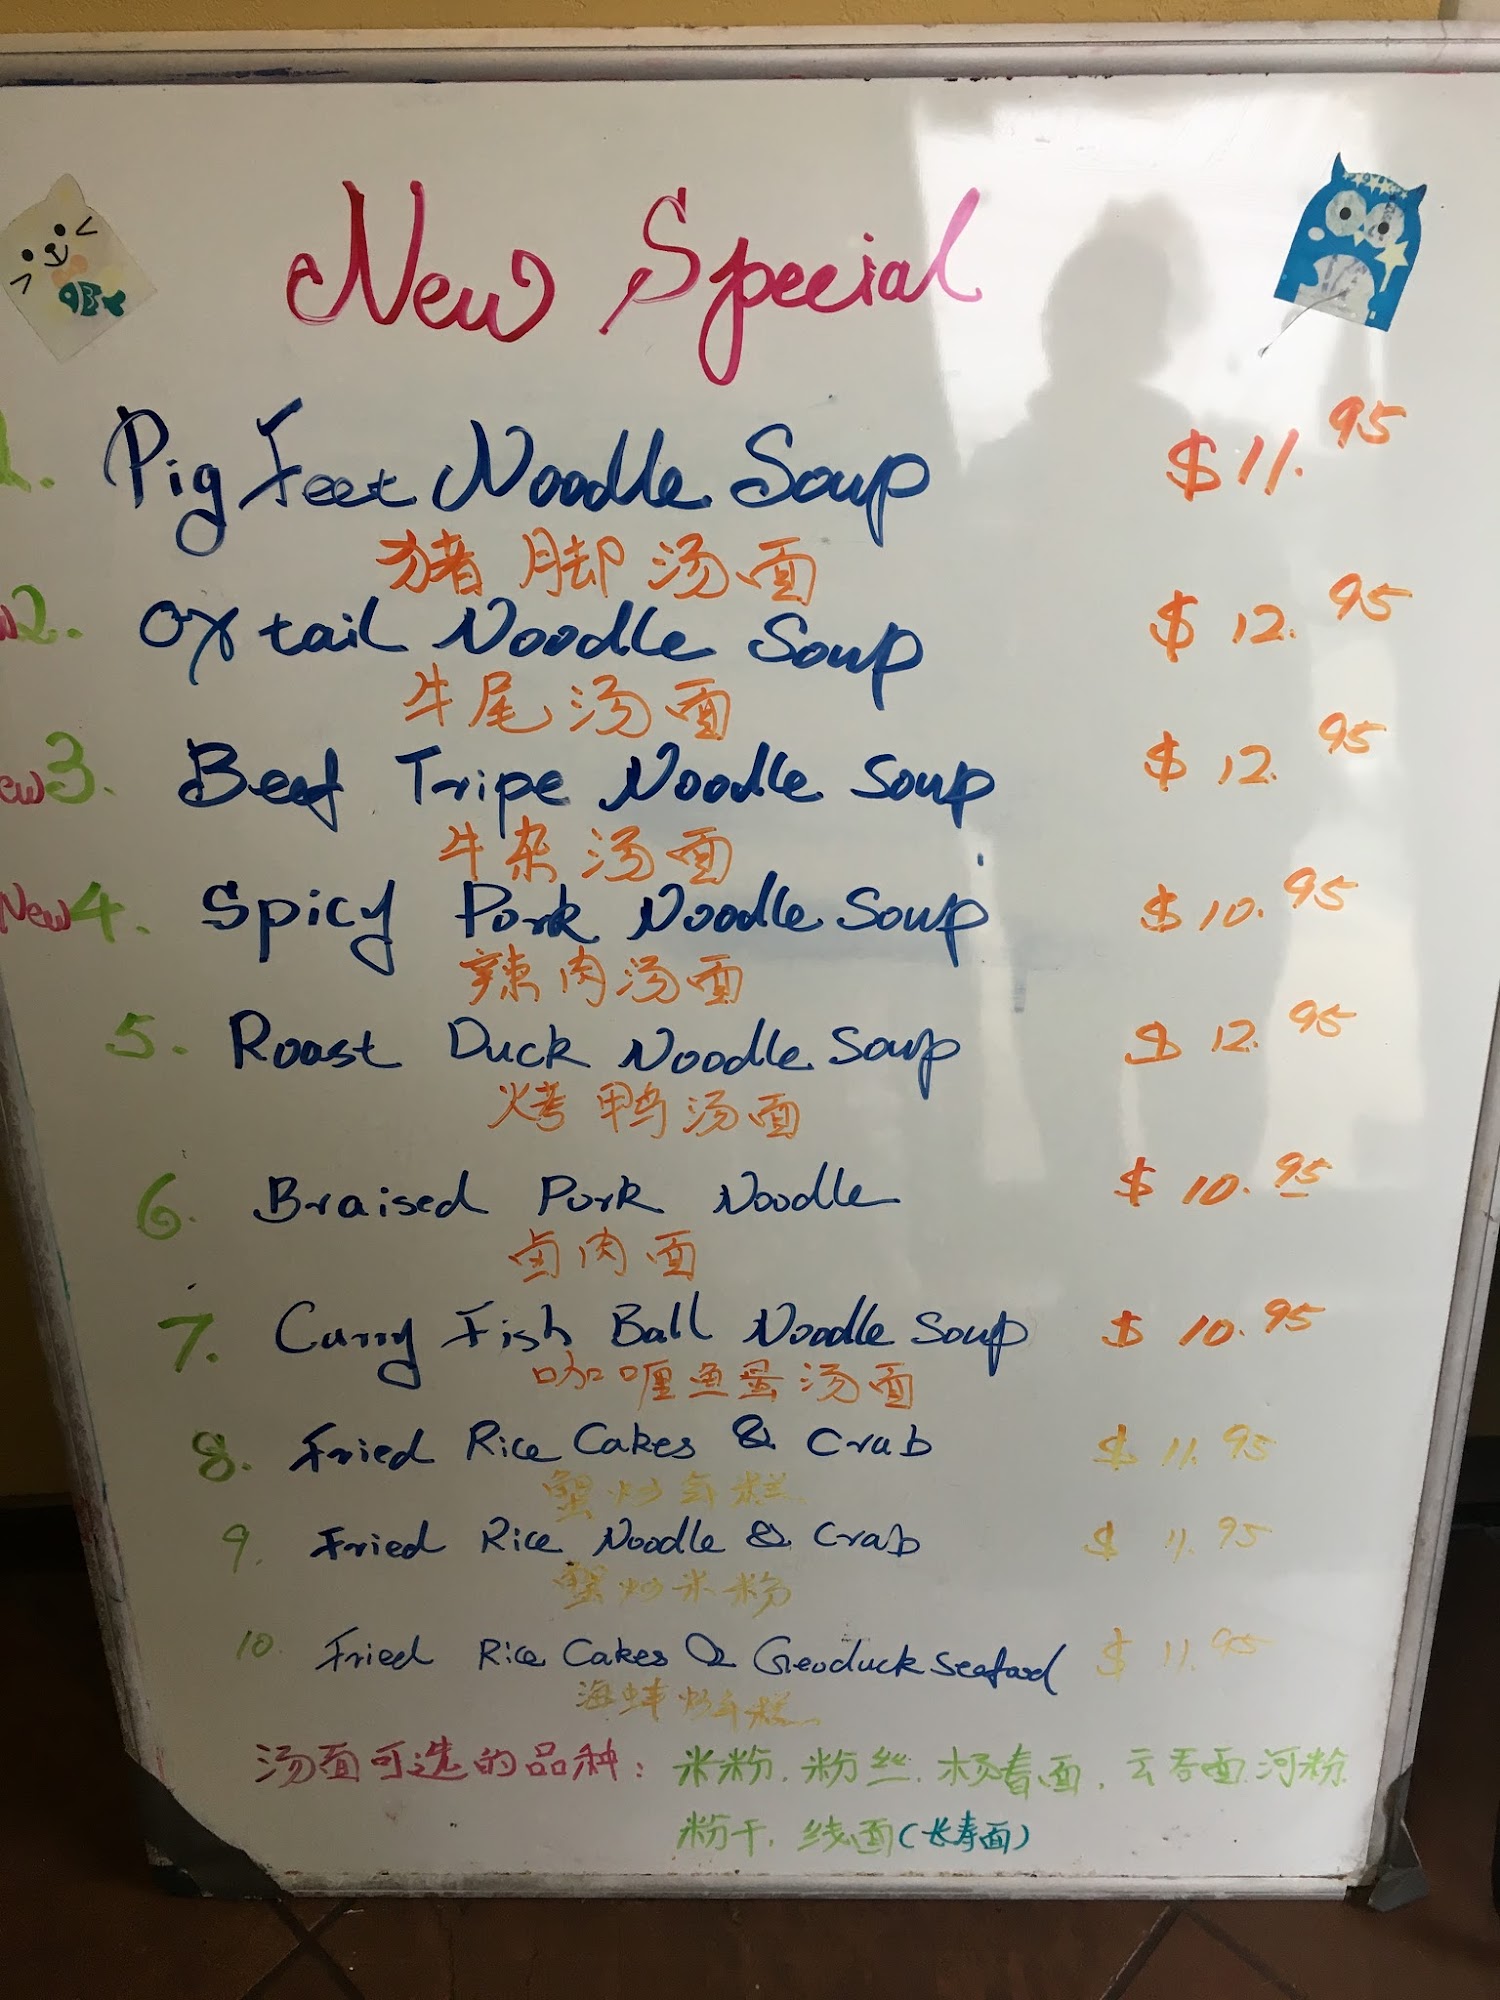 New Special
1. Pig Feet Noodle Soup $11.95
猪脚汤面
2. Oxtail Noodle Soup $12.95
牛尾汤面
3. Beef Tripe Noodle Soup $12.95
牛杂汤面
New 4. Spicy Pork Noodle Soup $10.95
辣肉汤面
5. Roast Duck Noodle Soup $12.95
烤鸭汤面
6. Braised Pork Noodle $10.95
卤肉面
7. Curry Fish Ball Noodle Soup $10.95
咖喱鱼蛋汤面
8. Fried Rice Cakes & Crab $11.95
蟹炒年糕
9. Fried Rice Noodle & Crab $11.95
蟹炒米粉
10. Fried Rice Cakes & Geoduck Seafood $11.95
海蚌炒年糕
汤面可选的品种: 米粉. 粉丝. 杨春面. 云吞面. 河粉.
粉干. 线面(长寿面)